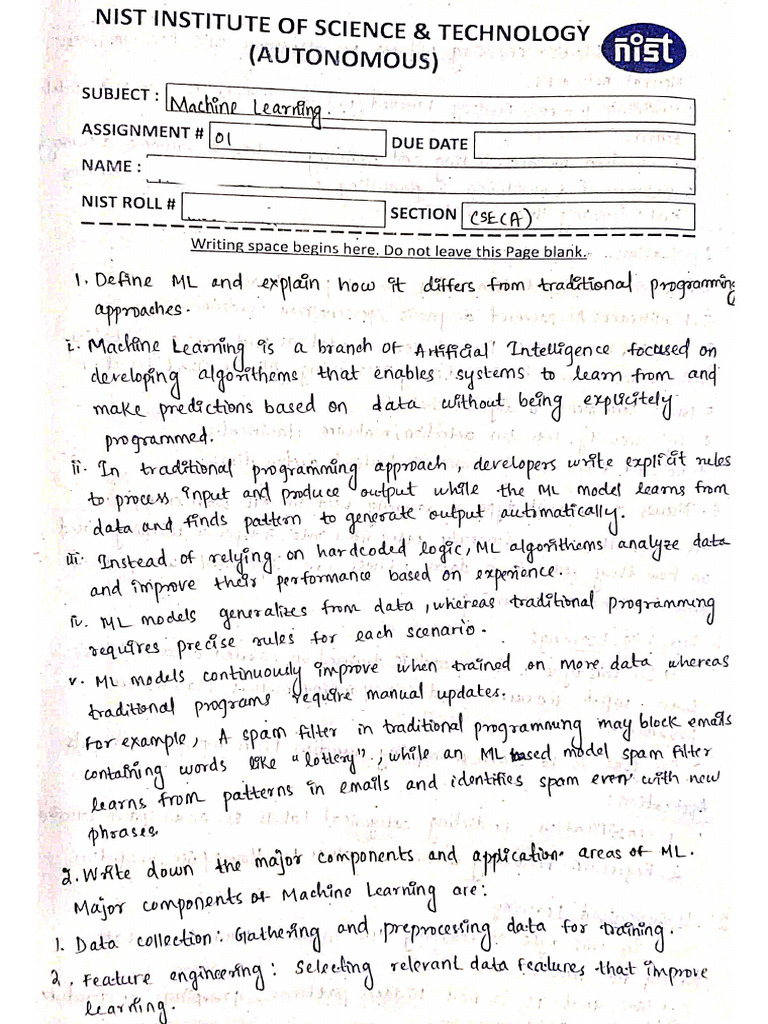 NIST INSTITUTE OF SCIENCE & TECHNOLOGY
(AUTONOMOUS)
nist
SUBJECT : Machine Learning.
ASSIGNMENT # 01 DUE DATE
NAME :
NIST ROLL # SECTION CSE(A)
Writing space begins here. Do not leave this Page blank.
1. Define ML and explain how it differs from traditional programming
approaches.
i. Machine Learning is a branch of Artificial Intelligence focused on
developing algorithems that enables systems to learn from and
make predictions based on data without being explicitely
programmed.
ii. In traditional programming approach, developers write explicit rules
to process input and produce output while the ML model learns from
data and finds pattern to generate output automatically.
iii. Instead of relying on hardcoded logic, ML algorithems analyze data
and improve their performance based on experience.
iv. ML models generalizes from data, whereas traditional programming
requires precise rules for each scenario.
v. ML models continuously improve when trained on more data whereas
traditional programs require manual updates.
For example, A spam filter in traditional programmung may block emails
containing words like "lottery"; while an ML based model spam filter
learns from patterns in emails and identifies spam even with new
phrases.
2. Write down the major components and application areas of ML.
Major components of Machine Learning are:
1. Data collection: Gathering and preprocessing data for training.
2. Feature engineering: Selecting relevant data features that improve
learning.